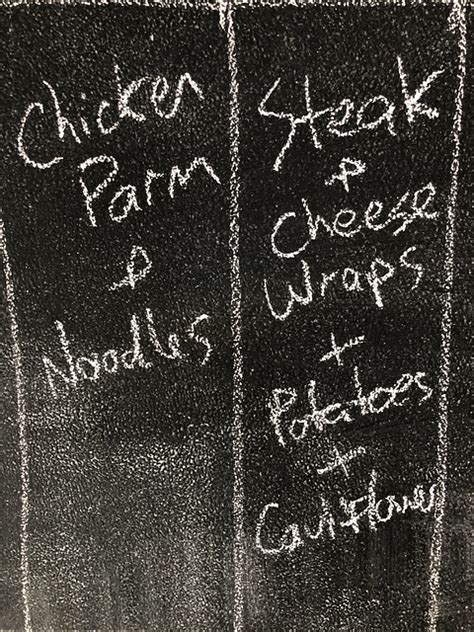 Chicken
Parm
&
Noodles
Steak
&
Cheese
Wraps
+
Potatoes
+
Cauliflower